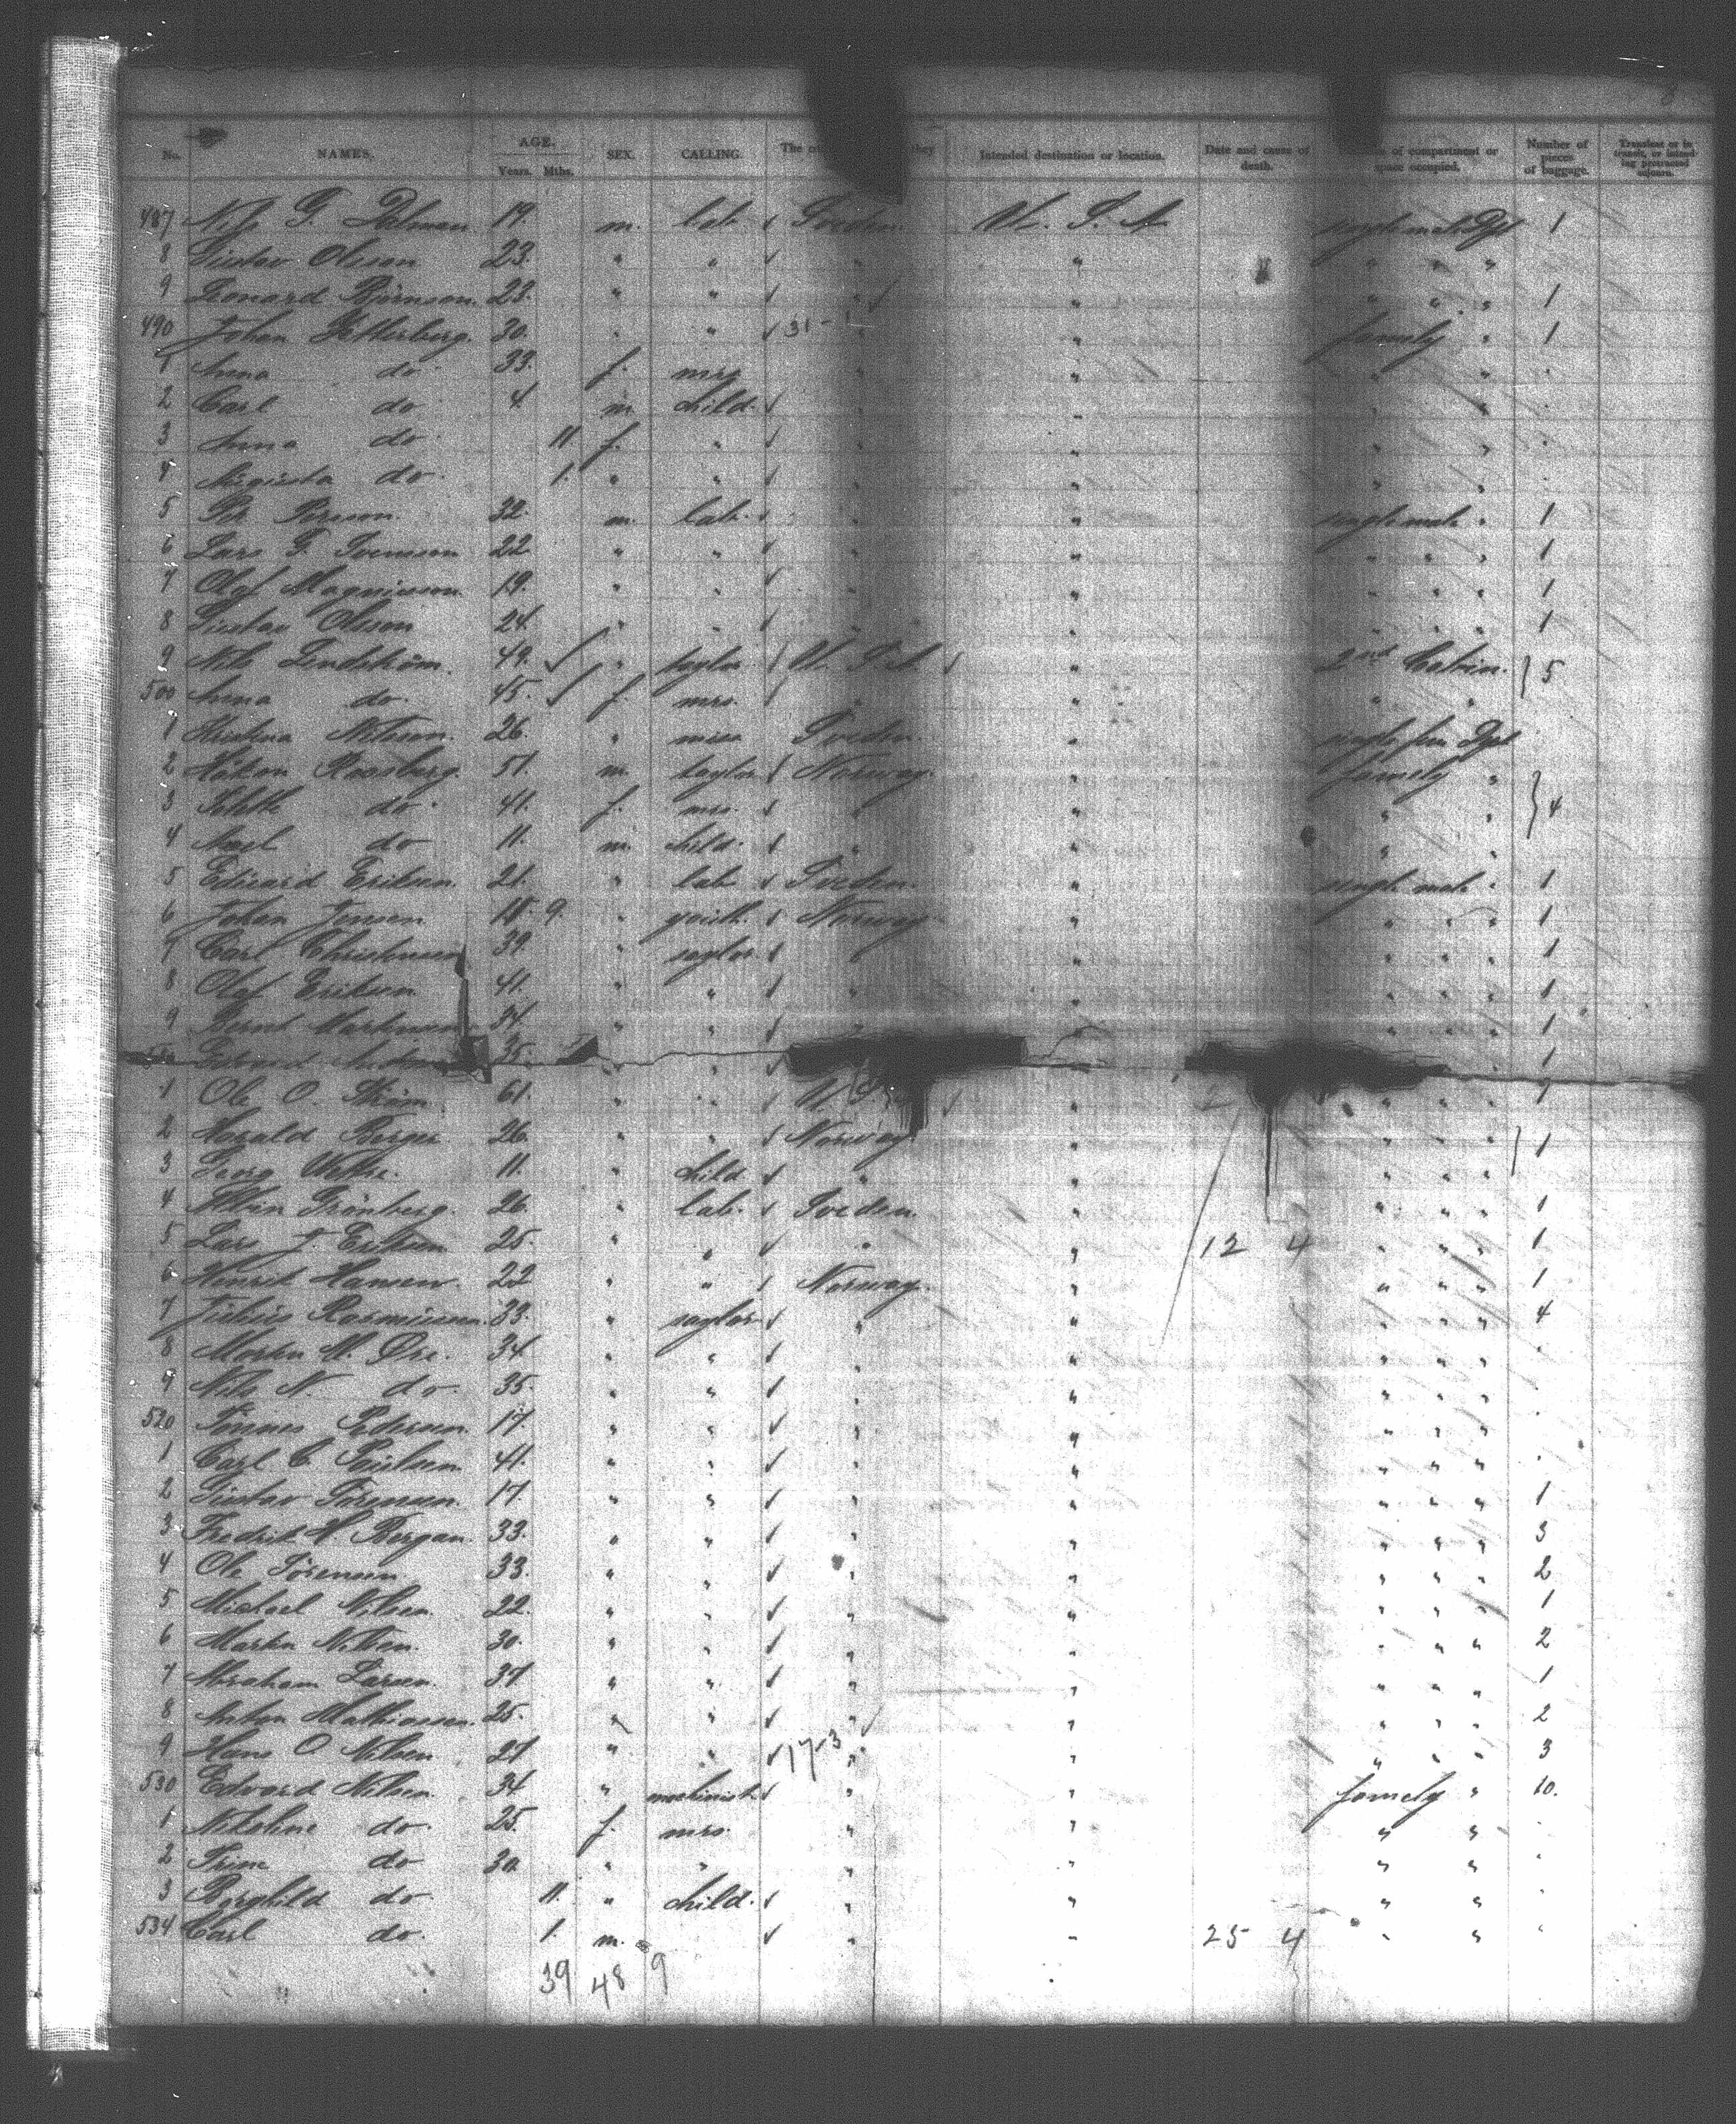 No. NAMES. AGE. Years. Mths. SEX. CALLING. The they Intended destination or location. Date and cause of death. of compartment or space occupied. Number of pieces of baggage. Transient or in transit, or intending protracted sojourn.
487 Nils G. 19. m. lab. Sveden. U. S. A. single male Dpt 1
8 Gustav Olsson 23. " " " " " " "
9 Leonard Björnson. 23. " " " " " " " 1
490 Johan Zetterberg. 30. " " 31- " family " 1
1 Anna do 33. f. mrs " " " "
2 Carl do 4. m. child. " " " "
3 Anna do 11 f. " " " " "
4 Augusta do 1. " " " " " "
5 Per 32. m. lab. " " single male " 1
6 Lars G. Svenson 22. " " " " " " " 1
7 Olof Magnusson 19. " " " " " " " 1
8 Gustav Olsson 24. " " " " " " " 1
9 Nils Lindström. 49. " taylor U. S. A. " 2nd Cabin. } 5
500 Anna do 45. f. mrs. " " " "
1 Kristina Nilsson. 26. " miss Sveden. " single fem Dpt
2 Håkon Rossberg. 51. m. taylor Norway. " family "
3 do 41. f. mrs. " " " " } 4
4 Axel do 11. m. child. " " " "
5 Edvard Eriksen. 21. " lab Sveden. " single male " 1
6 Johan Jensen 18. 9. " Norway " " " " 1
7 Carl Christensen 39. " saylor " " " " " 1
8 Olof Eriksen 41. " " " " " " " 1
9 Bernt 34. " " " " " " " 1
35. " " 1
1 Ole O. 61. " " U. S. " " " " 1
2 Harald Berger 26. " " Norway " " " " 1
3 Georg 11. " child " " " " "
4 Albin Grönberg. 26. " lab. Sveden. " " " " 1
5 Lars J. Eriksen 25. " " " " 12 4 " " " 1
6 Henrik Hansen. 22 " " Norway. " " " " 1
7 Julius Rasmussen. 33. " saylor " " " " " 4
8 Martin M. Øre. 34. " " " " " " " "
9 Nils N. do. 35. " " " " " " " "
520 Tønnes Petersen. 17. " " " " " " " "
1 Carl C. Paulsen. 41. " " " " " " " "
2 Gustav Sørensen. 17. " " " " " " " 1
3 Fredrik H. Bergan. 33. " " " " " " " 3
4 Ole Sørensen 33. " " " " " " " 2
5 Michael Nilsen. 22. " " " " " " " 1
6 Martin Nilsen. 30. " " " " " " " 2
7 Abraham Larsen. 37 " " " " " " " 1
8 Anton Mathiassen. 25. " " " " " " " 2
9 Hans O Nilsen 27 " " 17-3 " " " " " 3
530 Edvard Nilsen. 34 " machinist. " " family " 10.
1 Nikoline do. 25. f. mrs. " " " " "
2 Trine do 30. " " " " " " "
3 Borghild do 11. " child. " " " " "
534 Carl do. 1. m. " " " 25 4 " " "
39 48 9